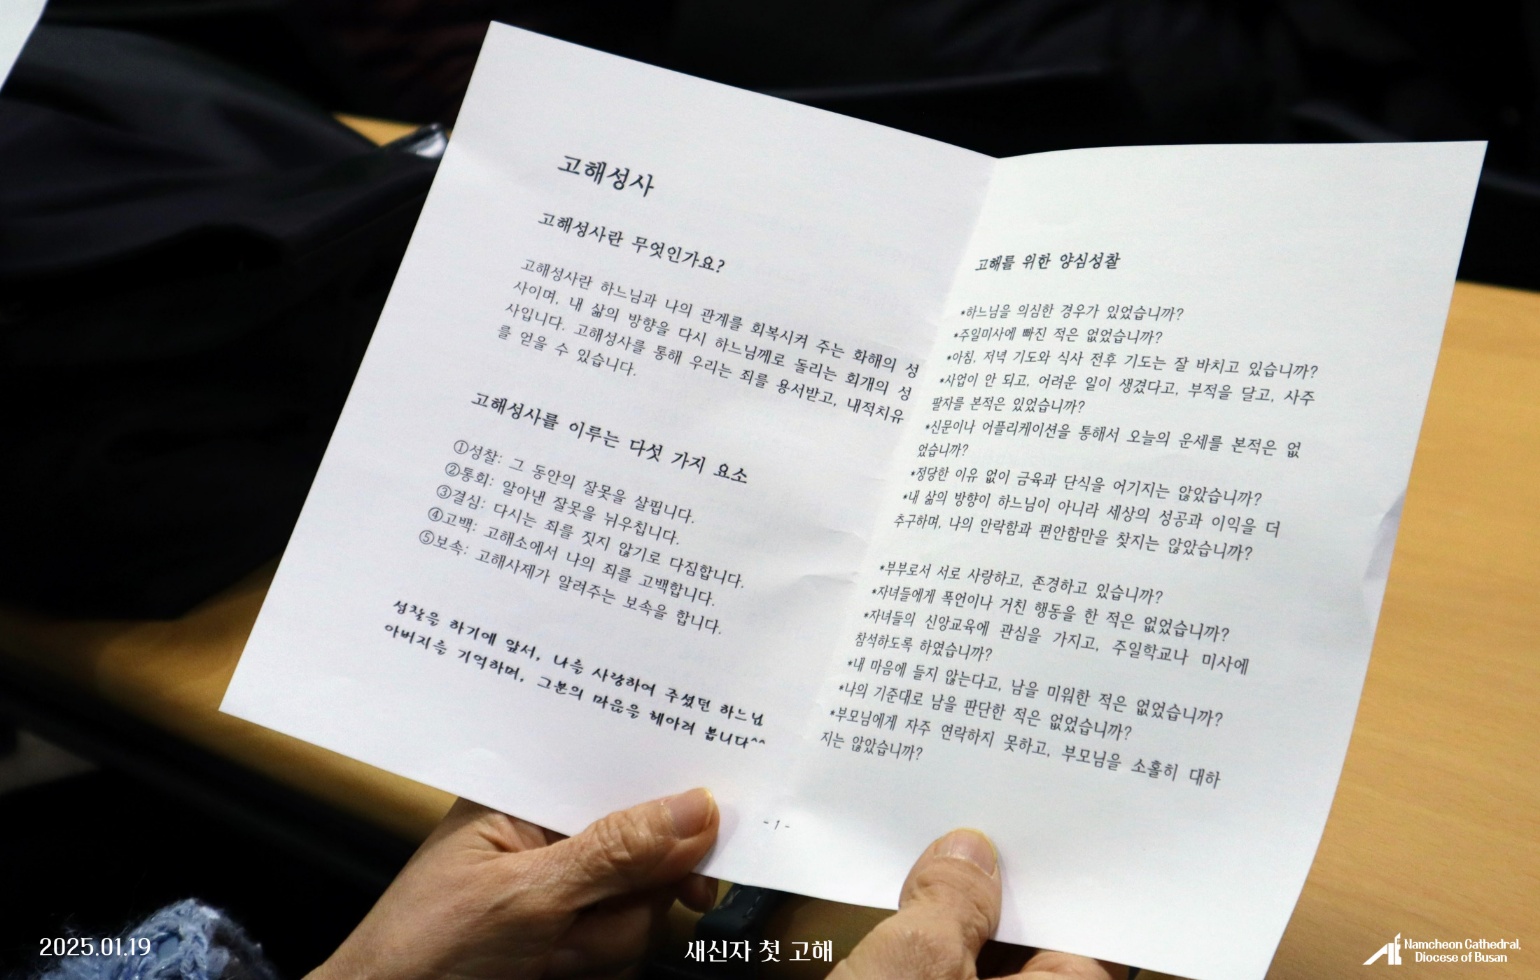 고해성사
고해성사란 무엇인가요?
고해성사란 하느님과 나의 관계를 회복시켜 주는 화해의 성
사이며, 내 삶의 방향을 다시 하느님께로 돌리는 회개의 성
사입니다. 고해성사를 통해 우리는 죄를 용서받고, 내적치유
를 얻을 수 있습니다.
고해성사를 이루는 다섯 가지 요소
①성찰: 그 동안의 잘못을 살핍니다.
②통회: 알아낸 잘못을 뉘우칩니다.
③결심: 다시는 죄를 짓지 않기로 다짐합니다.
④고백: 고해소에서 나의 죄를 고백합니다.
⑤보속: 고해사제가 알려주는 보속을 합니다.
성찰을 하기에 앞서, 나를 사랑하여 주셨던 하느님
아버지를 기억하며, 그분의 마음을 헤아려 봅니다^^
-1-
고해를 위한 양심성찰
*하느님을 의심한 경우가 있었습니까?
*주일미사에 빠진 적은 없었습니까?
*아침, 저녁 기도와 식사 전후 기도는 잘 바치고 있습니까?
*사업이 안 되고, 어려운 일이 생겼다고, 부적을 달고, 사주
팔자를 본적은 있었습니까?
*신문이나 어플리케이션을 통해서 오늘의 운세를 본적은 없
었습니까?
*정당한 이유 없이 금육과 단식을 어기지는 않았습니까?
*내 삶의 방향이 하느님이 아니라 세상의 성공과 이익을 더
추구하며, 나의 안락함과 편안함만을 찾지는 않았습니까?
*부부로서 서로 사랑하고, 존경하고 있습니까?
*자녀들에게 폭언이나 거친 행동을 한 적은 없었습니까?
*자녀들의 신앙교육에 관심을 가지고, 주일학교나 미사에
참석하도록 하였습니까?
*내 마음에 들지 않는다고, 남을 미워한 적은 없었습니까?
*나의 기준대로 남을 판단한 적은 없었습니까?
*부모님에게 자주 연락하지 못하고, 부모님을 소홀히 대하
지는 않았습니까?
2025.01.19
새신자 첫 고해
Namcheon Cathedral,
Diocese of Busan